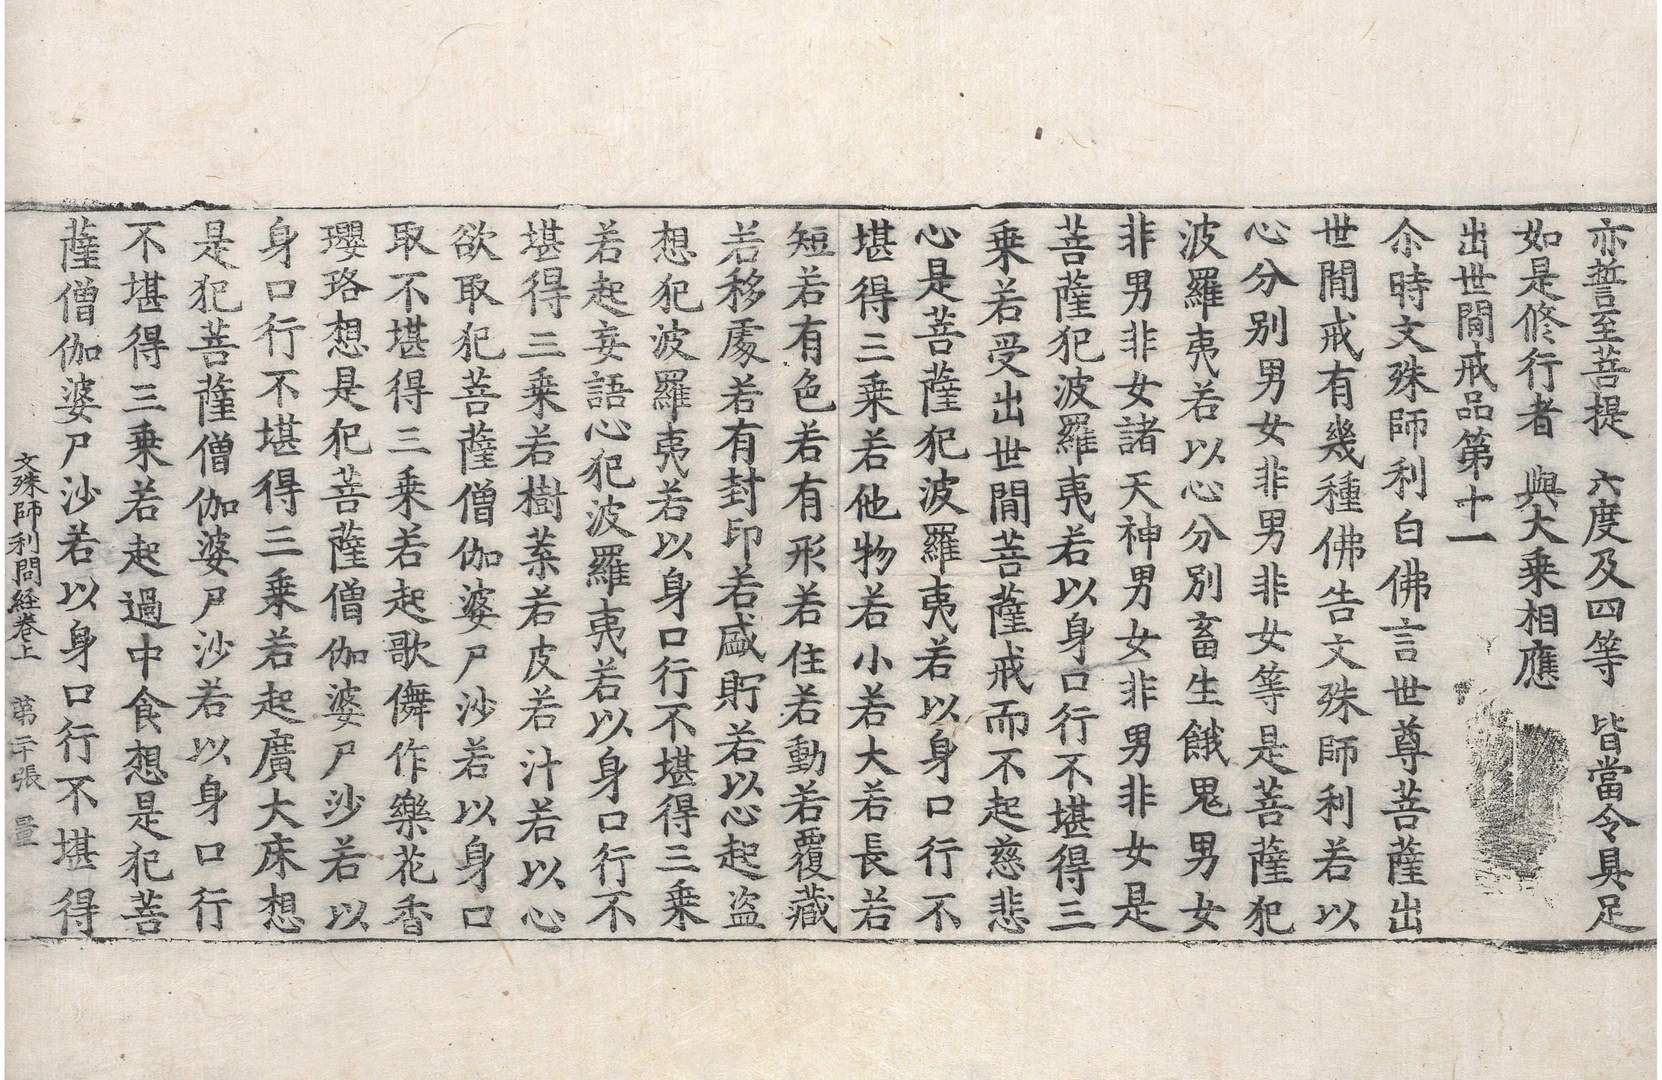 亦誓至菩提　六度及四等　皆當令具足
如是修行者　與大乗相應
出世間戒品第十一
尒時文殊師利白佛言世尊菩薩出
世間戒有幾種佛告文殊師利若以
心分别男女非男非女等是菩薩犯
波羅夷若以心分別畜生餓鬼男女
非男非女諸天神男女非男非女是
菩薩犯波羅夷若以身口行不堪得三
乗若受出世間菩薩戒而不起慈悲
心是菩薩犯波羅夷若以身口行不
堪得三乗若他物若小若大若長若
短若有色若有形若住若動若覆藏
若移處若有封印若盛貯若以心起盜
想犯波羅夷若以身口行不堪得三乗
若起妄語心犯波羅夷若以身口行不
堪得三乗若樹葉若皮若汁若以心
欲取犯菩薩僧伽婆尸沙若以身口
取不堪得三乗若起歌儛作樂花香
瓔珞想是犯菩薩僧伽婆尸沙若以
身口行不堪得三乗若起廣大床想
是犯菩薩僧伽婆尸沙若以身口行
不堪得三乗若起過中食想是犯菩
薩僧伽婆尸沙若以身口行不堪得
文殊師利問経卷上　第二十張　量